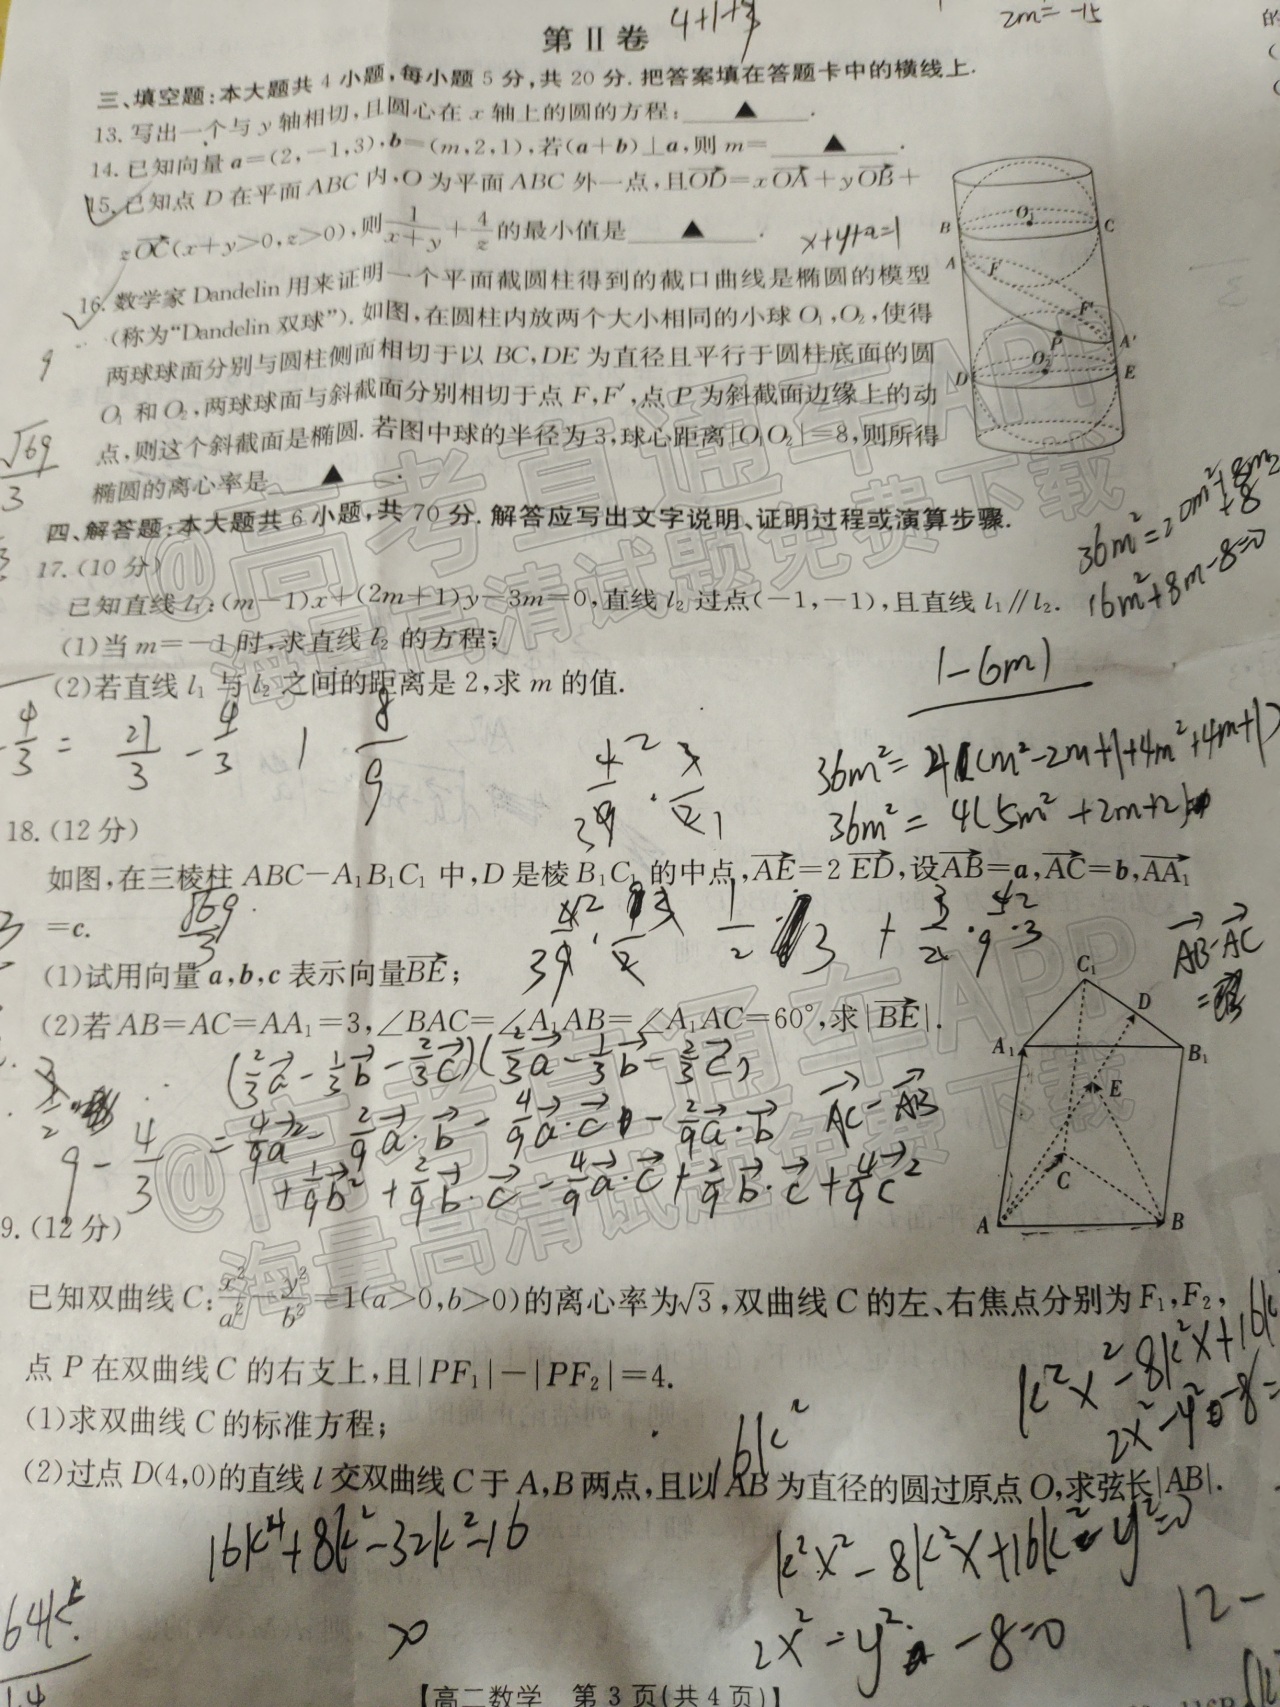 第Ⅱ卷
4+1+
2m=-15
三、填空题:本大题共4小题,每小题5分,共20分.把答案填在答题卡中的横线上.
13.写出一个与y轴相切,且圆心在x轴上的圆的方程:▲.
14.已知向量a=(2,-1,3),b=(m,2,1),若(a+b)⊥a,则m=▲.
15.已知点D在平面ABC内,O为平面ABC外一点,且OD=xOA+yOB+
zOC(x+y>0,z>0),则1/(x+y)+4/z的最小值是▲.
x+y+z=1
16.数学家Dandelin用来证明一个平面截圆柱得到的截口曲线是椭圆的模型
(称为“Dandelin双球”).如图,在圆柱内放两个大小相同的小球O₁,O₂,使得
两球球面分别与圆柱侧面相切于以BC,DE为直径且平行于圆柱底面的圆
O₁和O₂,两球球面与斜截面分别相切于点F,F′,点P为斜截面边缘上的动
点,则这个斜截面是椭圆.若图中球的半径为3,球心距离|O₁O₂|=8,则所得
椭圆的离心率是▲.
B O₁ C
A F
F′
P A′
D O₂ E
9
√69/3
四、解答题:本大题共6小题,共70分.解答应写出文字说明、证明过程或演算步骤.
36m²=20m²+8m+8
16m²+8m-8=0
17.(10分)
已知直线l₁:(m-1)x+(2m+1)y-3m=0,直线l₂过点(-1,-1),且直线l₁∥l₂.
(1)当m=-1时,求直线l₂的方程;
(2)若直线l₁与l₂之间的距离是2,求m的值.
|-6m|
-4/3 = 21/3 - 4/3 1 8/9
36m²=4(m²-2m+1+4m²+4m+1)
36m²=4(5m²+2m+2)
18.(12分)
如图,在三棱柱ABC-A₁B₁C₁中,D是棱B₁C₁的中点,AE=2ED,设AB=a,AC=b,AA₁
=c.
√69/3
(1)试用向量a,b,c表示向量BE;
(2)若AB=AC=AA₁=3,∠BAC=∠A₁AB=∠A₁AC=60°,求|BE|.
AB-AC
C₁
D
A₁ B₁
E
C
A B
(2/3a-1/3b-2/3c)(2/3a-1/3b-2/3c)
=4/9a²-2/9a·b-4/9a·c-2/9a·b
AC-AB
+1/9b²+2/9b·c-4/9a·c+2/9b·c+4/9c²
9-4/3
9.(12分)
已知双曲线C:x²/a²-y²/b²=1(a>0,b>0)的离心率为√3,双曲线C的左、右焦点分别为F₁,F₂,
点P在双曲线C的右支上,且|PF₁|-|PF₂|=4.
k²x²-8k²x+16k²
2x²-y²-8=
(1)求双曲线C的标准方程;
16k²
(2)过点D(4,0)的直线l交双曲线C于A,B两点,且以AB为直径的圆过原点O,求弦长|AB|.
16k⁴+8k²-32k²-16
k²x²-8k²x+16k²-y²=0
2x²-y²-8=0
12-
64k²
【高二数学 第3页(共4页)】
@高考直通车APP
海量高清试题免费下载
@高考直通车APP
海量高清试题免费下载